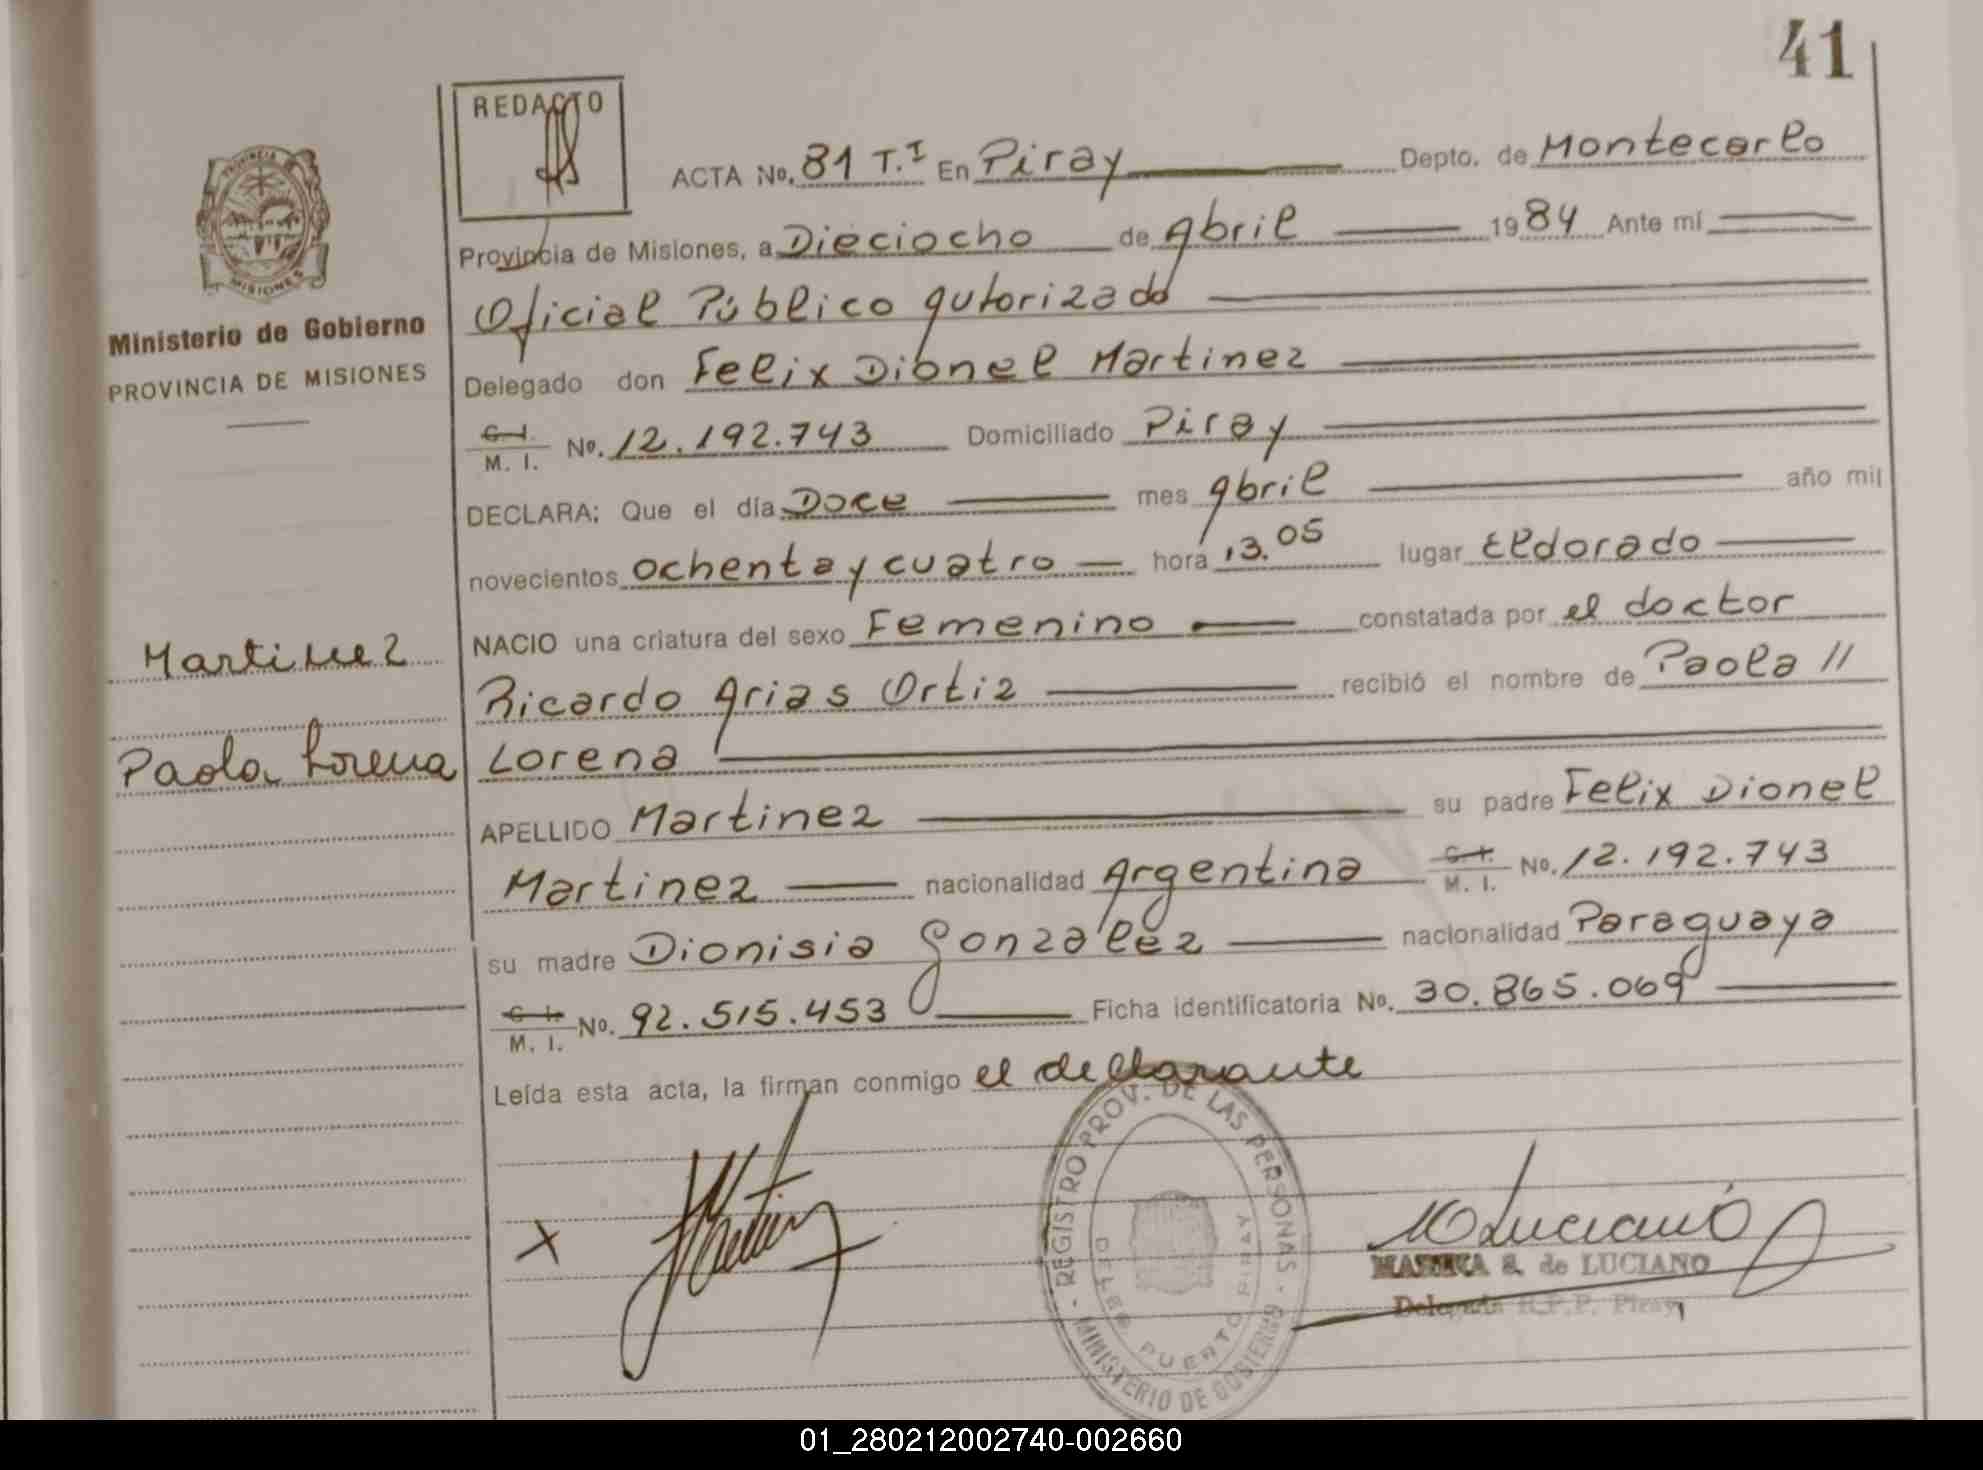 41
REDACTO
ACTA No. 81 T.I En Piray Depto. de Montecarlo
Provincia de Misiones, a Dieciocho de Abril 1984 Ante mí
Oficial Público autorizado
Delegado don Felix Dionel Martinez
C. I. M. I. No. 12.192.743 Domiciliado Piray
DECLARA; Que el día Doce mes Abril año mil
novecientos ochenta y cuatro hora 13.05 lugar Eldorado
NACIO una criatura del sexo Femenino constatada por el doctor
Ricardo Arias Ortiz recibió el nombre de Paola //
Lorena
APELLIDO Martinez su padre Felix Dionel
Martinez nacionalidad Argentina C. I. M. I. No. 12.192.743
su madre Dionisia González nacionalidad Paraguaya
C. I. M. I. No. 92.515.453 Ficha identificatoria No. 30.865.069
Leída esta acta, la firman conmigo el declarante
PROVINCIA DE
MISIONES
Ministerio de Gobierno
PROVINCIA DE MISIONES
Martinez
Paola Lorena
X
REGISTRO PROV. DE LAS PERSONAS - MINISTERIO DE GOBIERNO
DELEG. PUERTO PIRAY
Luciano
MARTHA S. de LUCIANO
Delegada R.P.P. Piray
01_280212002740-002660